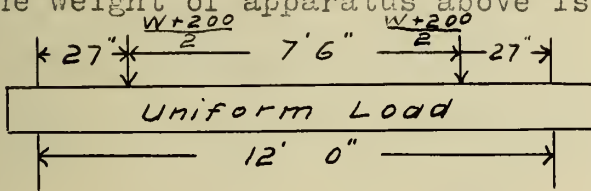 he weight of apparatus above is
W+200 W+200
2 2
27" 7' 6" 27"
Uniform Load
12' 0"